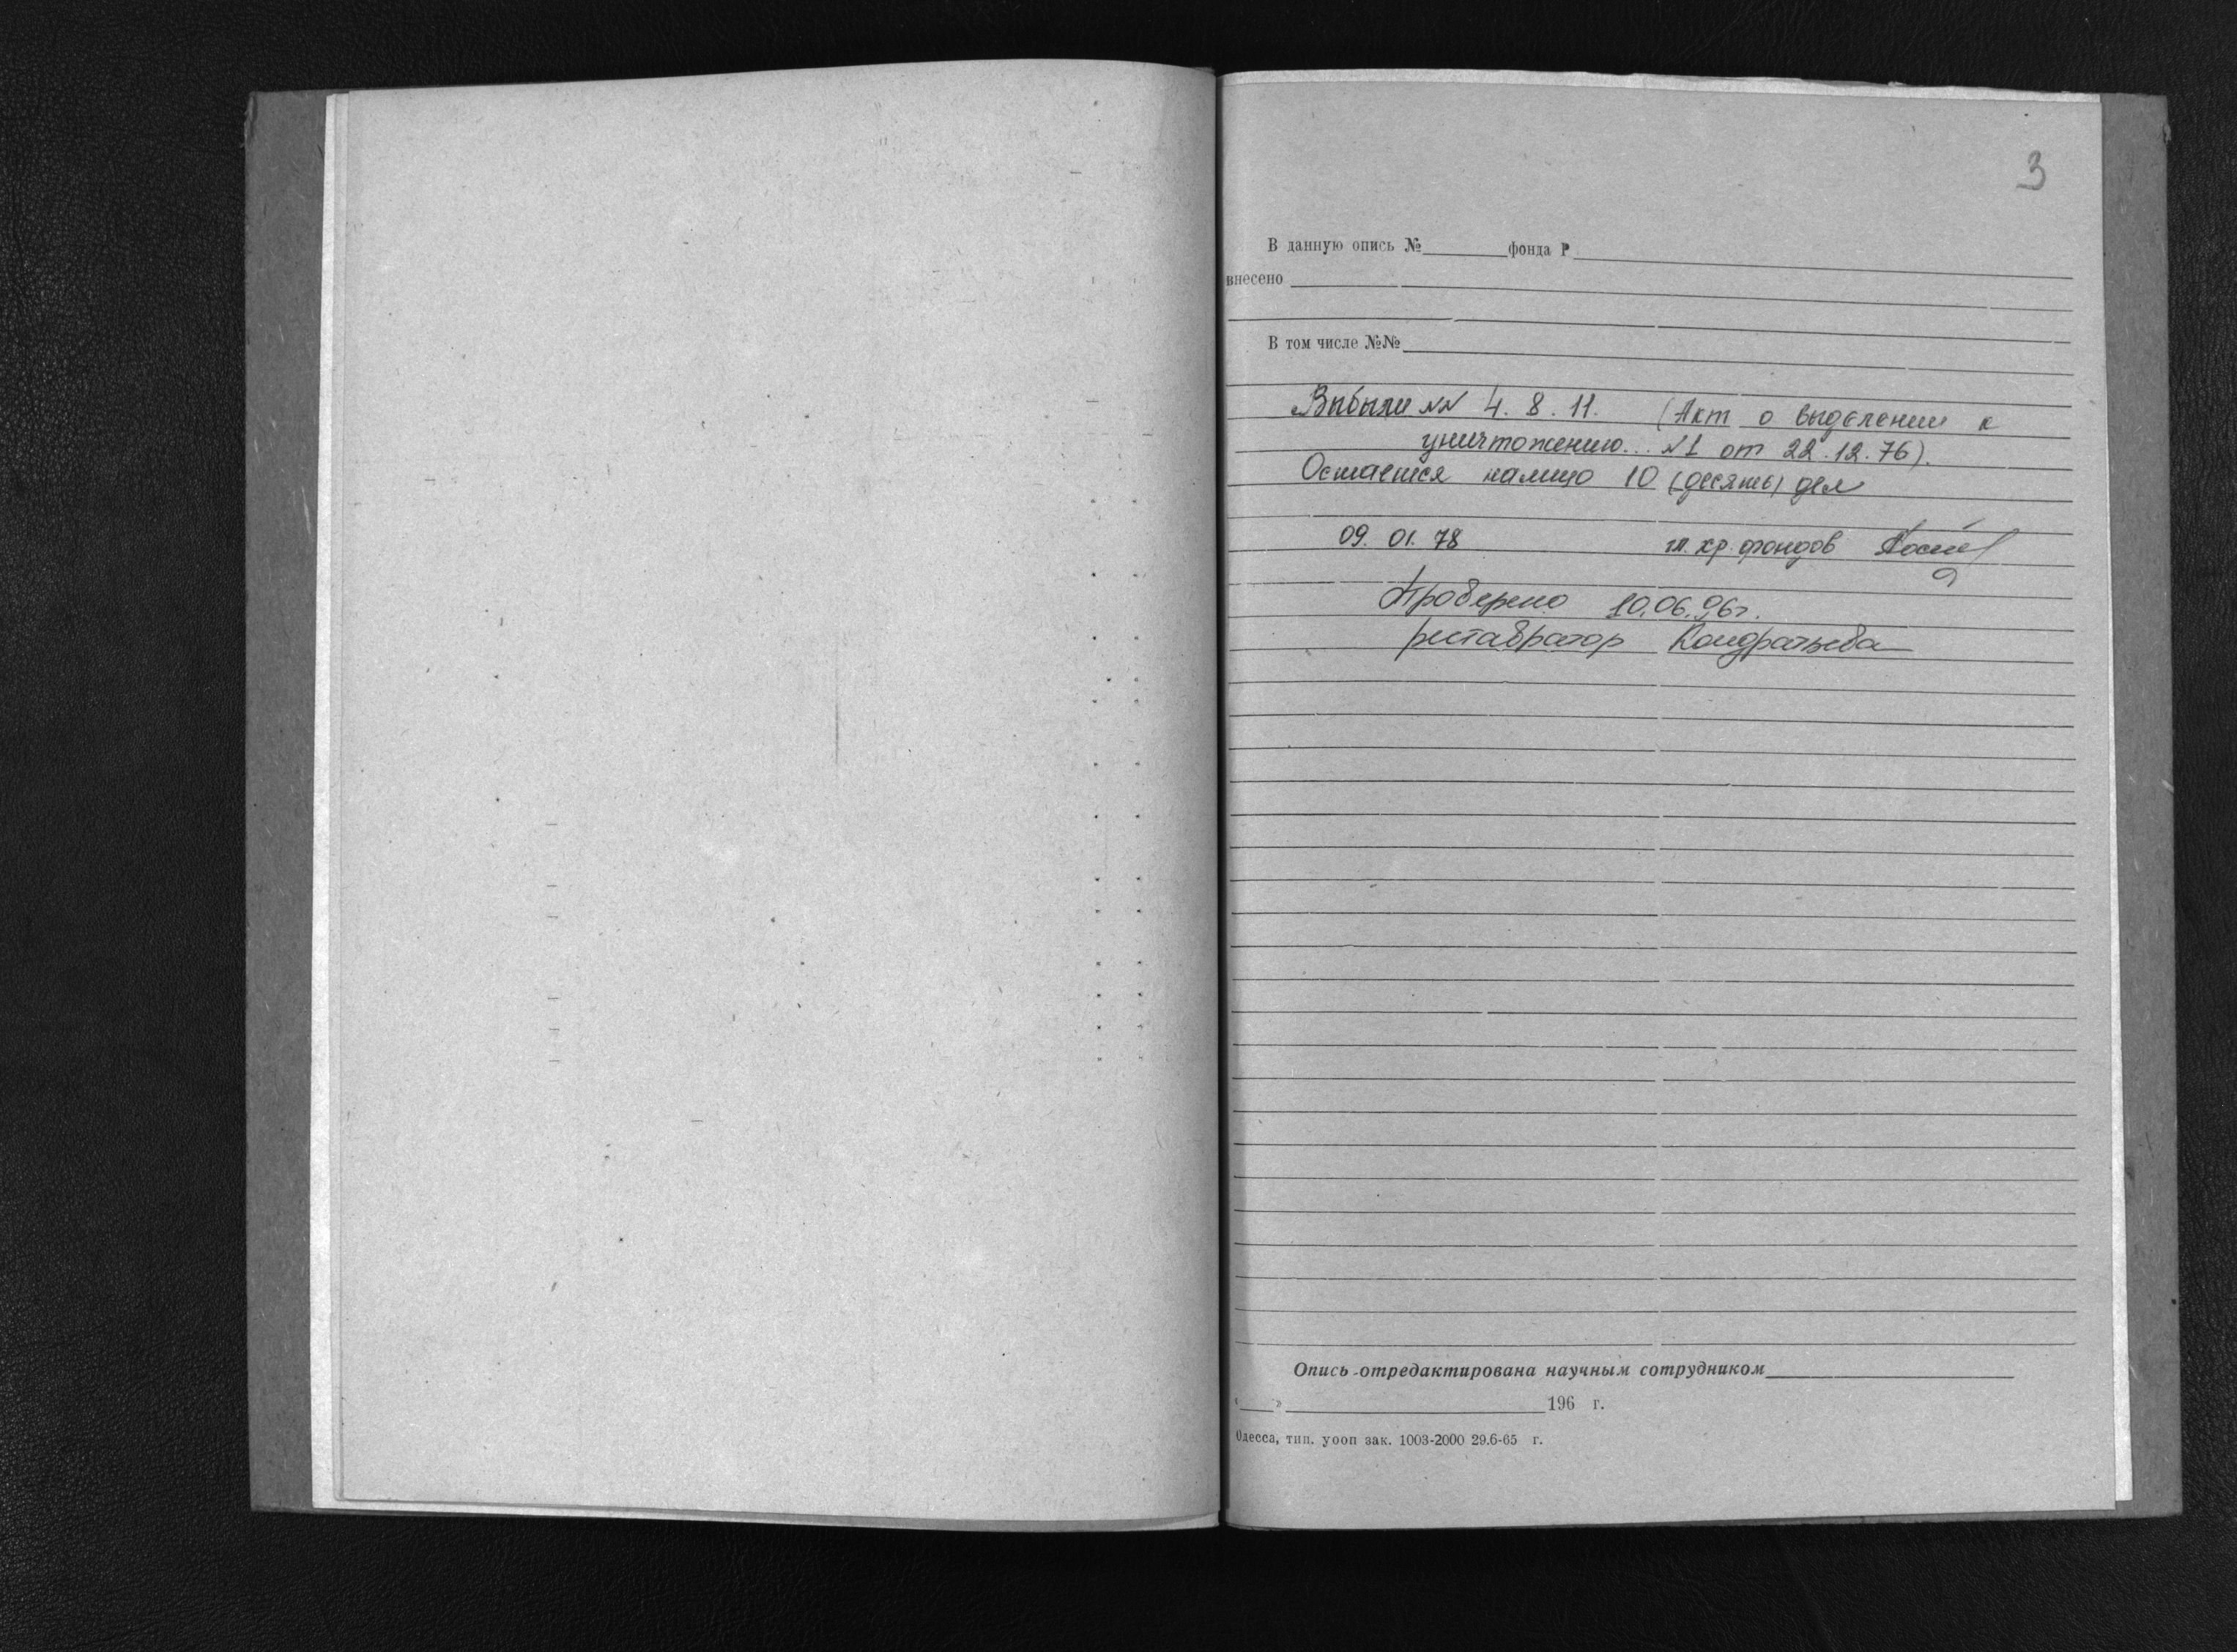 3
В данную опись №______фонда Р
внесено
В том числе №№
Выбыли NN 4. 8. 11. (Акт о выделении к
уничтожению... N1 от 22.12.76).
Остается налицо 10 (десять) дел
09. 01. 78 гл. хр. фондов
Проверено 10.06.96г.
реставратор Кондратьева
Опись отредактирована научным сотрудником
«___»______196 г.
Одесса, тип. уооп зак. 1003-2000 29.6-65 г.